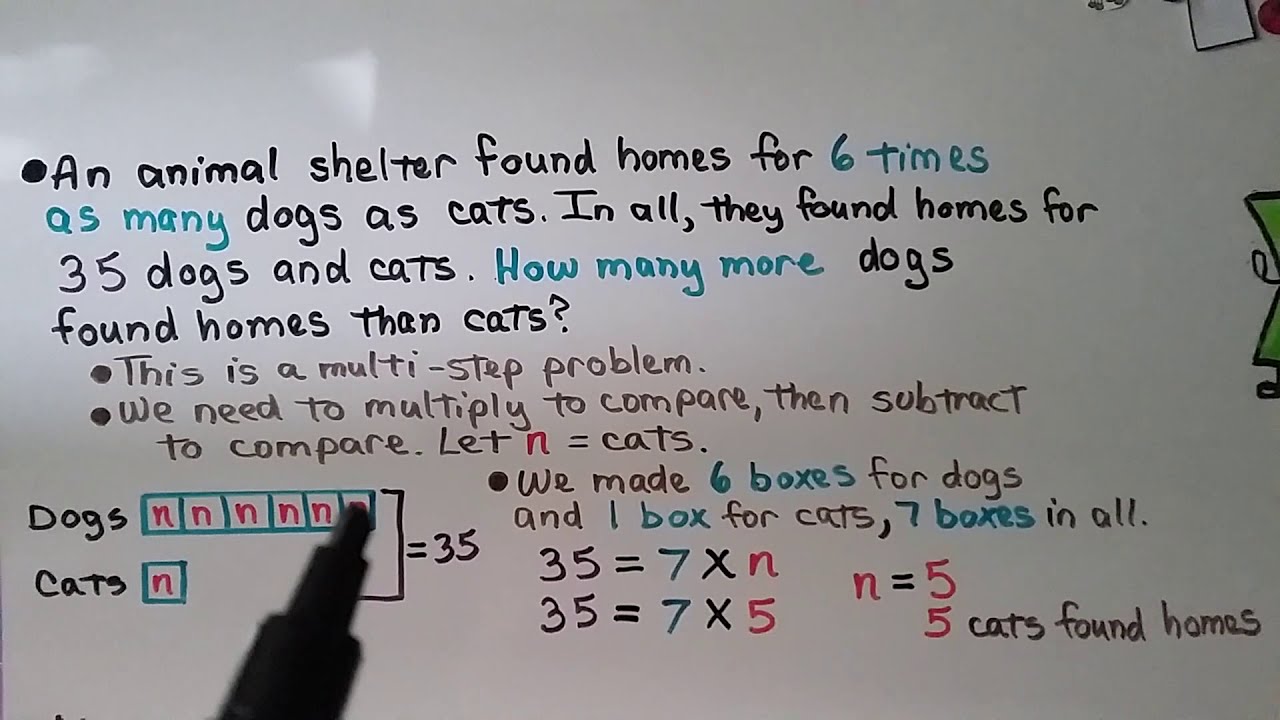 • An animal shelter found homes for 6 times
as many dogs as cats. In all, they found homes for
35 dogs and cats. How many more dogs
found homes than cats?
• This is a multi-step problem.
• We need to multiply to compare, then subtract
to compare. Let n = cats.
Dogs n n n n n n
Cats n
= 35
• We made 6 boxes for dogs
and 1 box for cats, 7 boxes in all.
35 = 7 X n
35 = 7 X 5
n = 5
5 cats found homes